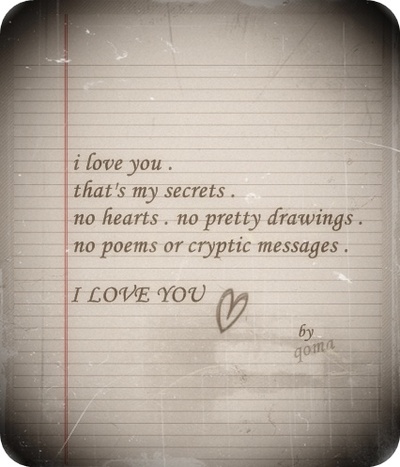 i love you .
that's my secrets .
no hearts . no pretty drawings .
no poems or cryptic messages .
I LOVE YOU
by
qoma